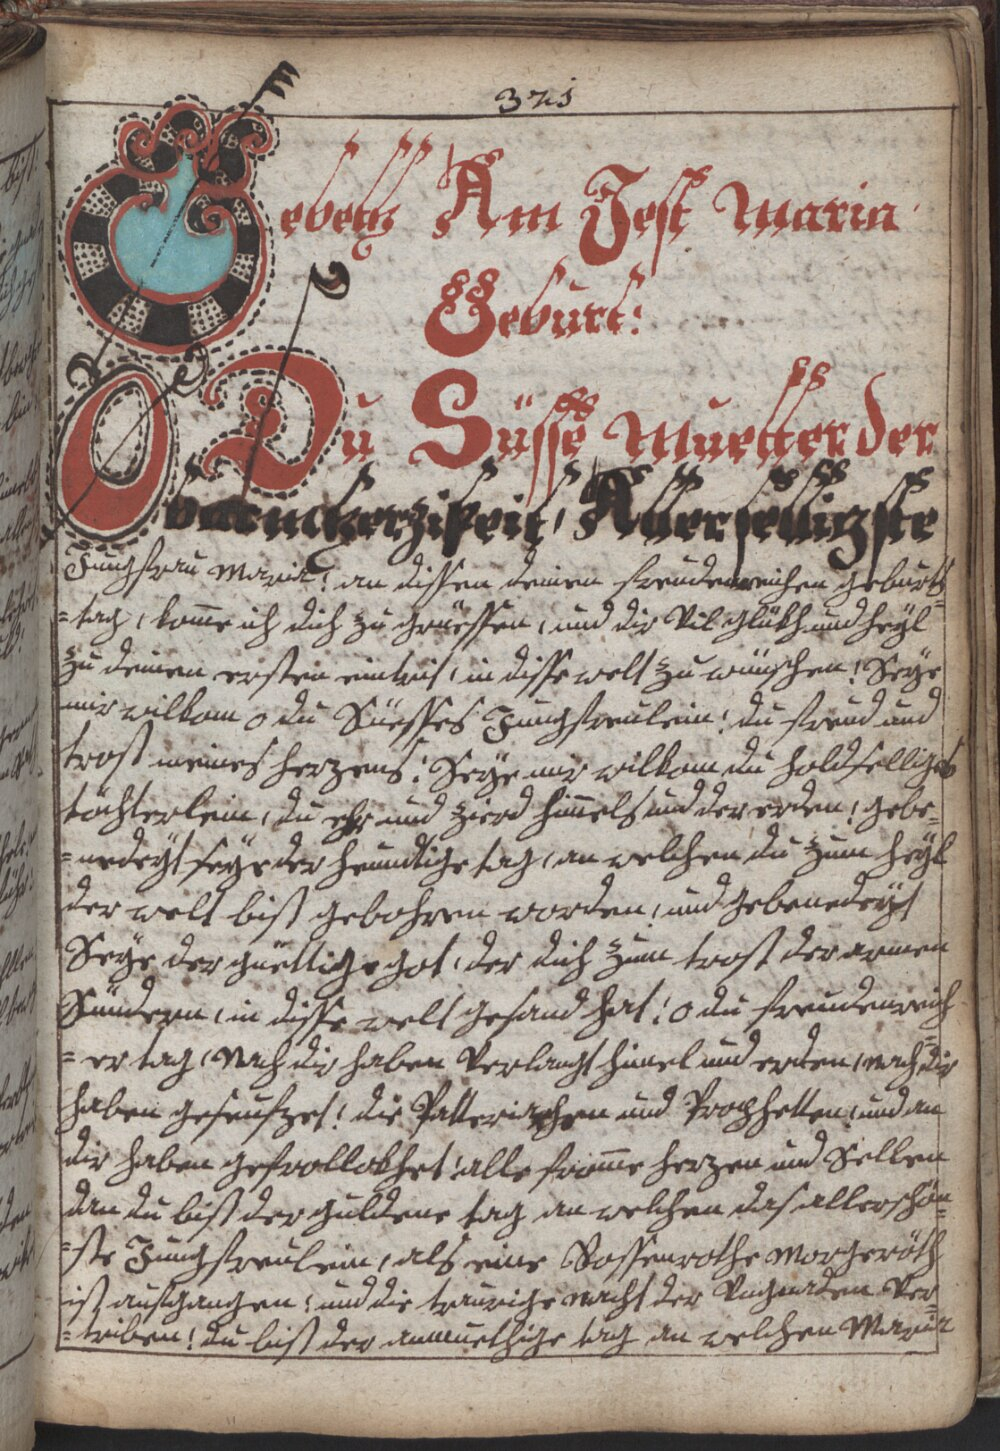 321
Gebett Am Fest Maria
Geburt:
O Du Süsse Muetter der
barmherzikeit, Allerseeligste
Jungfrau Maria! an dissen deinen freudenreichen geburts
=tag, kome ich dich zu grüessen, und dir Vil glükh und heyl
zu deinen ersten eintrit, in disse welt zu wünschen! Seye
mir wilkom o du Süesses Jungfreulein! du freud und
trost meines herzens! Seye mir wilkom du holdselliges
töchterlein, du ehr und zierd himels und der erden! gebe=
=nedeyt seye der heundtige tag, an welchen du zum heyl
der welt bist gebohren worden, und gebenedeyt
Seye der güettige got, der dich zum trost der armen
Sündern, in disse welt gesand hat! o du freudenreich
=er tag, Nach dir haben Verlangt himel und erden, nach dir
haben geseufzet! die Patteriachen und Prophetten! und an
dir haben gefrollokhet! alle frome herzen und Sellen
dan du bist der guldene tag an welchen das allerschön=
=ste Jungfreulein, als eine Rossenrothe Morgeröth
ist aufgangen! und die traurige nacht der Ungnaden Ver=
=triben! du bist der anmuethige tag an welchen Maria